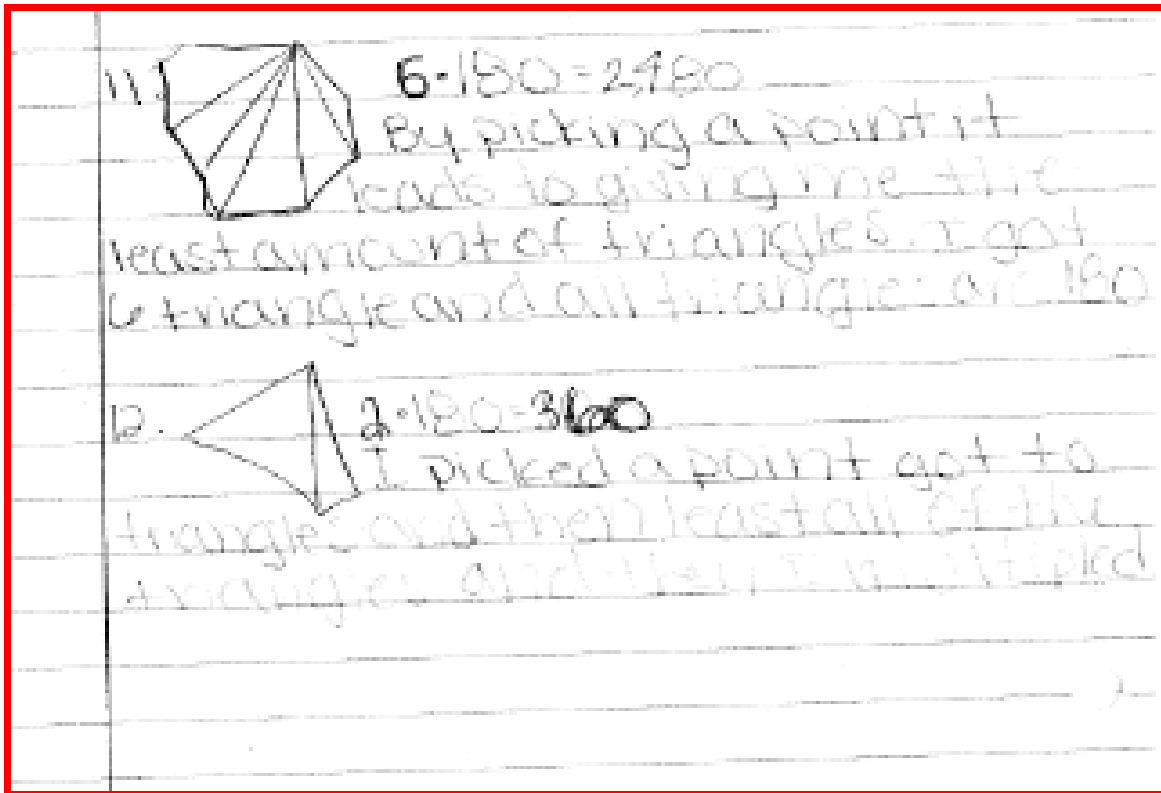 11. 6·180=2480
By picking a point it
leads to giving me the
least amount of triangles. I got
6 triangle and all triangles ar 180
12. 2·180=360
I picked a point got to
triangles and then least all of the
triangles and then I multipled